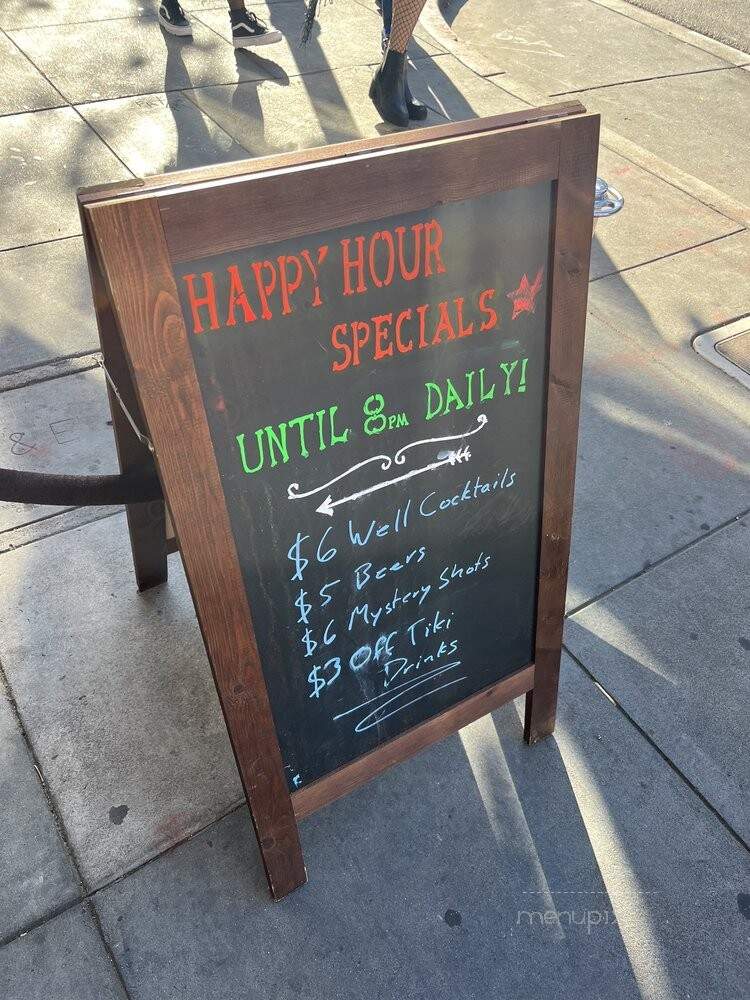 HAPPY HOUR
SPECIALS
UNTIL 8PM DAILY!
$6 Well Cocktails
$5 Beers
$6 Mystery Shots
$3 Off Tiki
Drinks
menupix